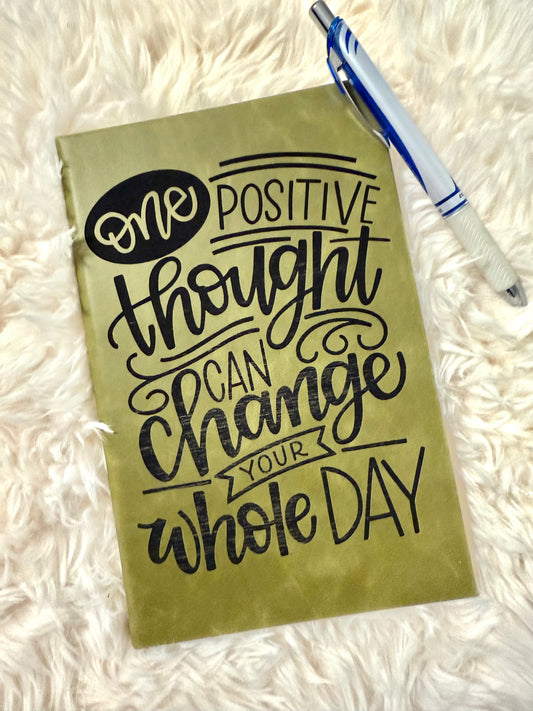 one POSITIVE
thought
CAN
change
YOUR
whole DAY